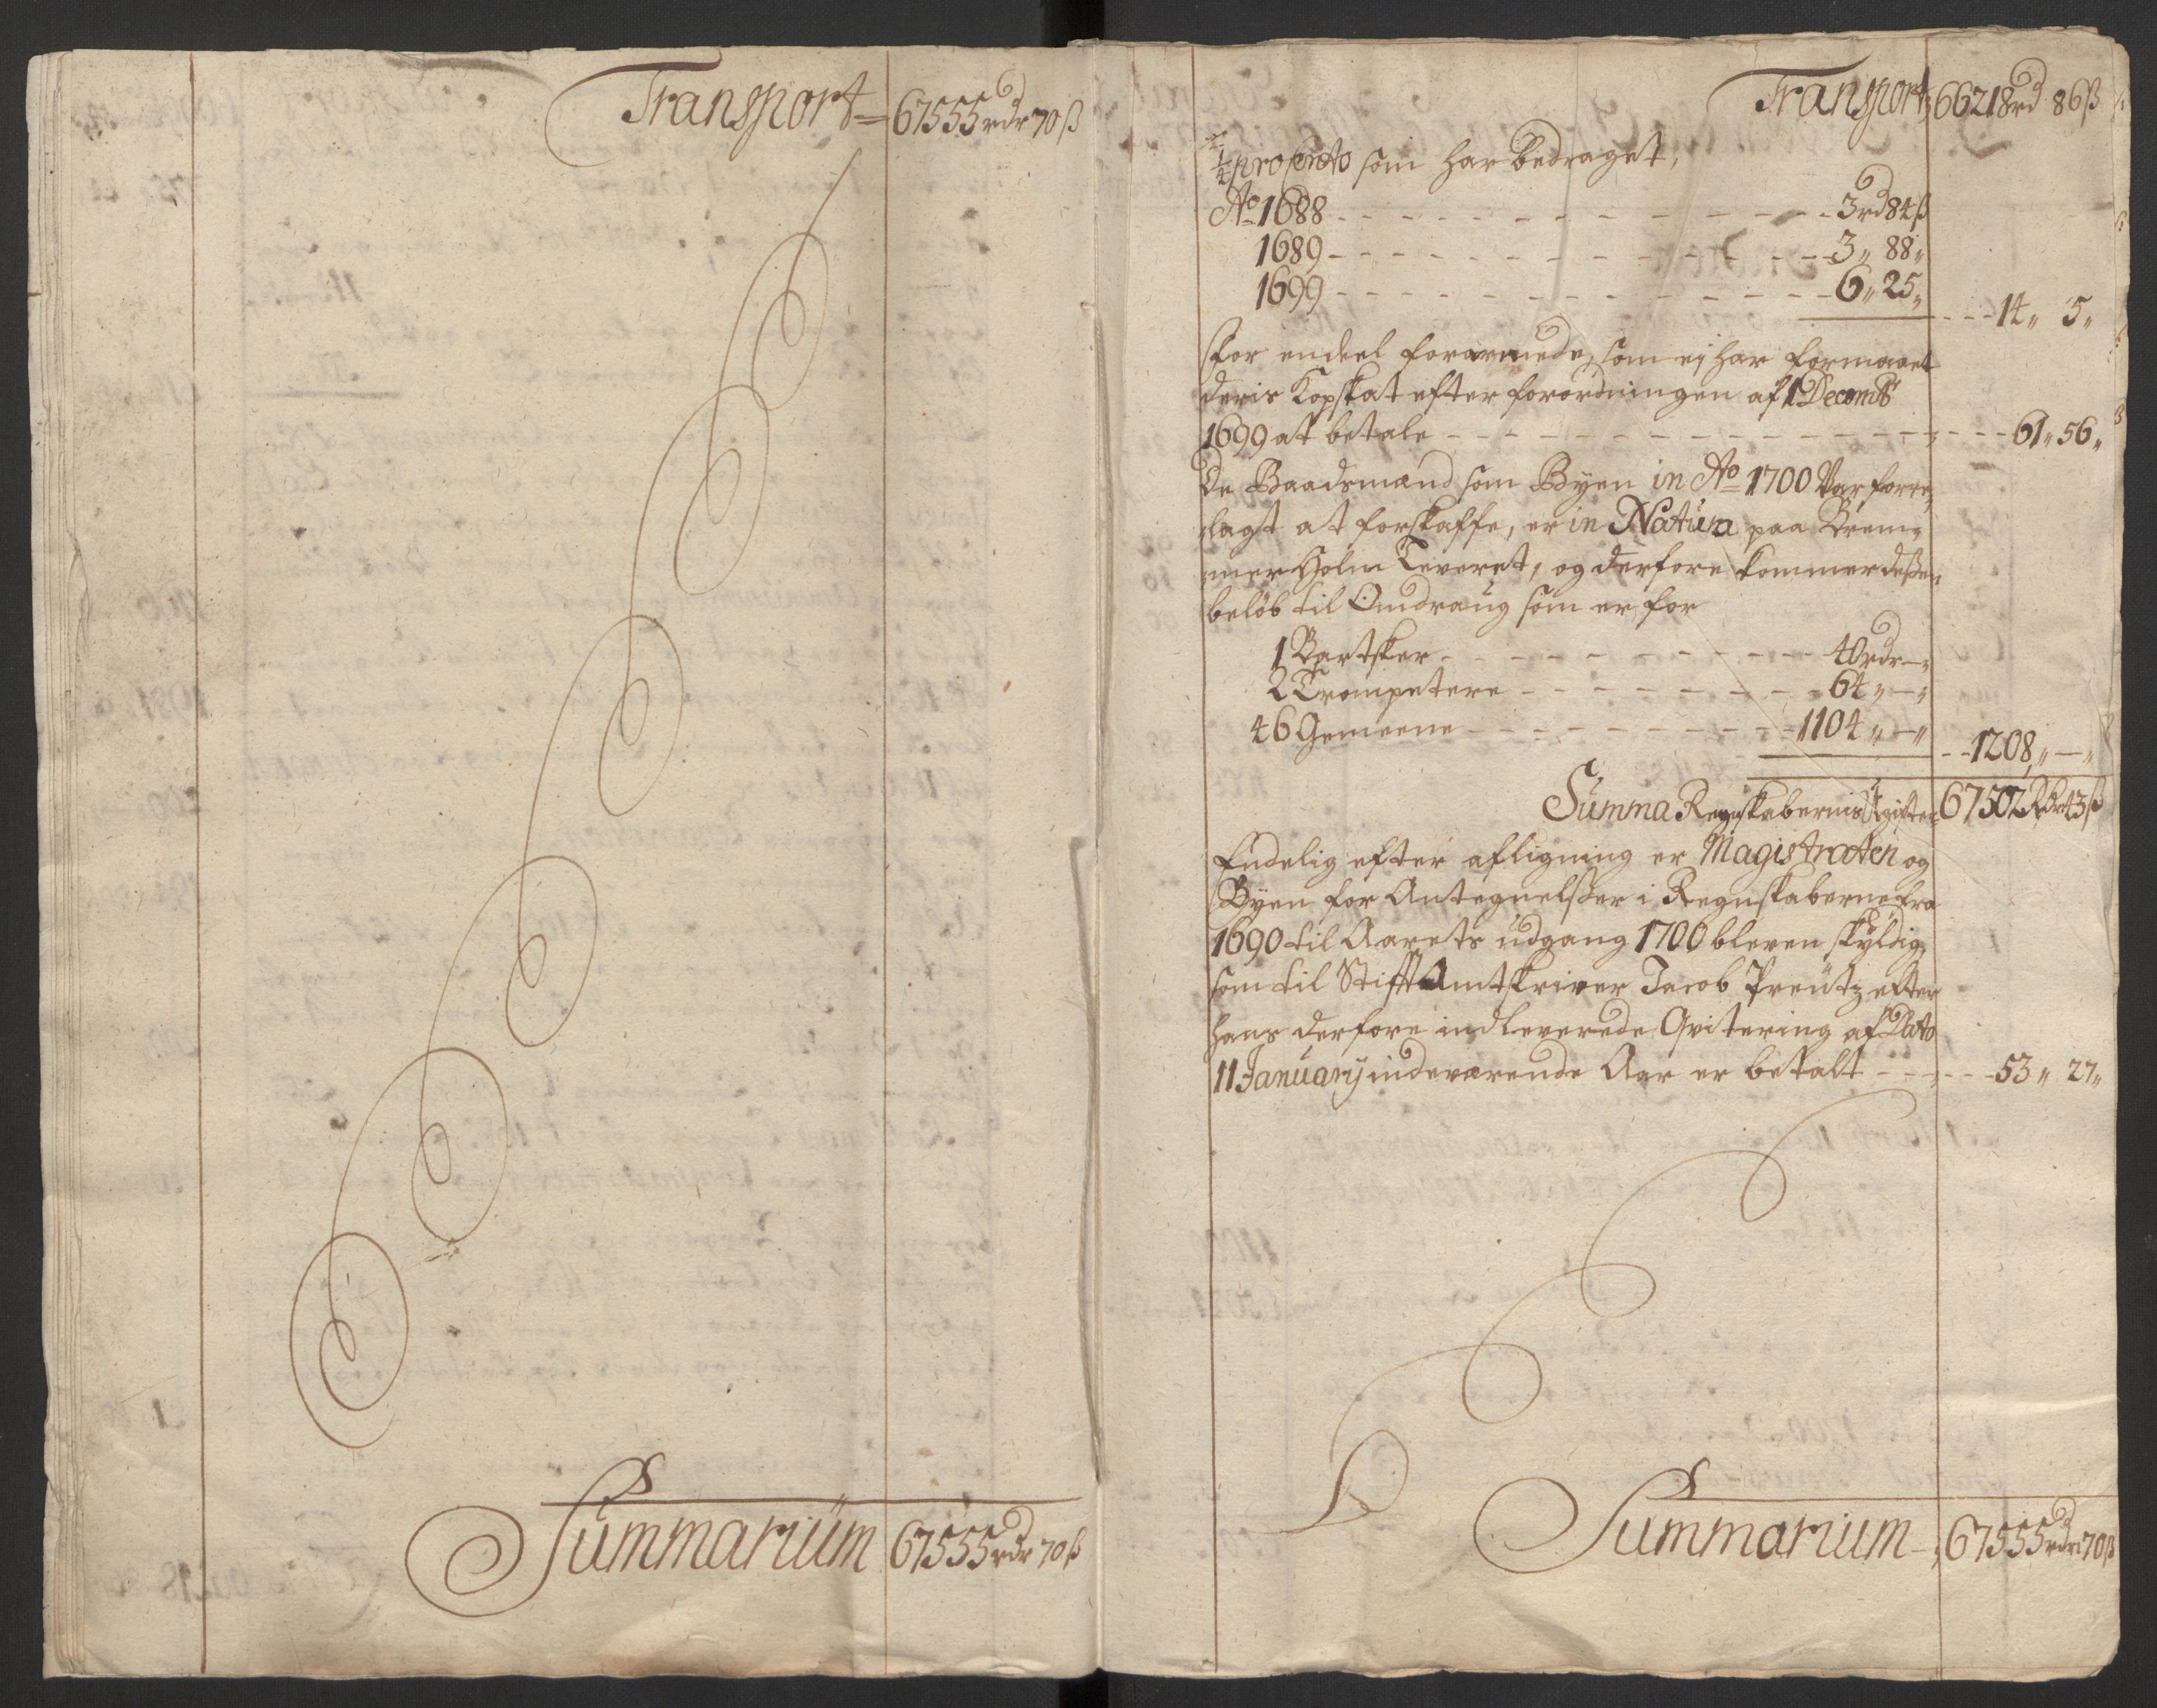 Transport 67555 rdr 70 ß
Summarium 67555 rdr 70 ß
Transport 66218 rd 86 ß
1/4 pro Cento som har bedraget,
Ao 1688 3 rd 84 ß
1689 3 „ 88 „
1699 6 „ 25 „
14 „ 5 „
For endeel forarmede, som ej har formaaet
deris Kopskat efter forordningen af 1 Decembr
1699 at betale 61 „ 56 „
De Baadsmænd som Byen in Ao 1700 Var forre
lagt at forskaffe, er in Natura paa Brem-
mer Holm Leveret, og derfore kommer deßen
beløb til Omdraug som er for
1 Bartsker 40 rdr — „
2 Trompetere 64 „ — „
46 Gemeene 1104 „ — „
1208 „ — „
Summa Regnskabernis Udgifter 67502 Rdr 43 ß
Endelig efter afligning er Magistraten og
Byen for Antegnelsßer i Regnskaberne fra
1690 til Aarets udgang 1700 bleven skyldig
som til Stifft Amtskriver Jacob Preutz efter
hans derfore indleverede Qvitering af Dato
11 January indeværende Aar er betalt 53 „ 27 „
Summarium 67555 rdr 70 ß